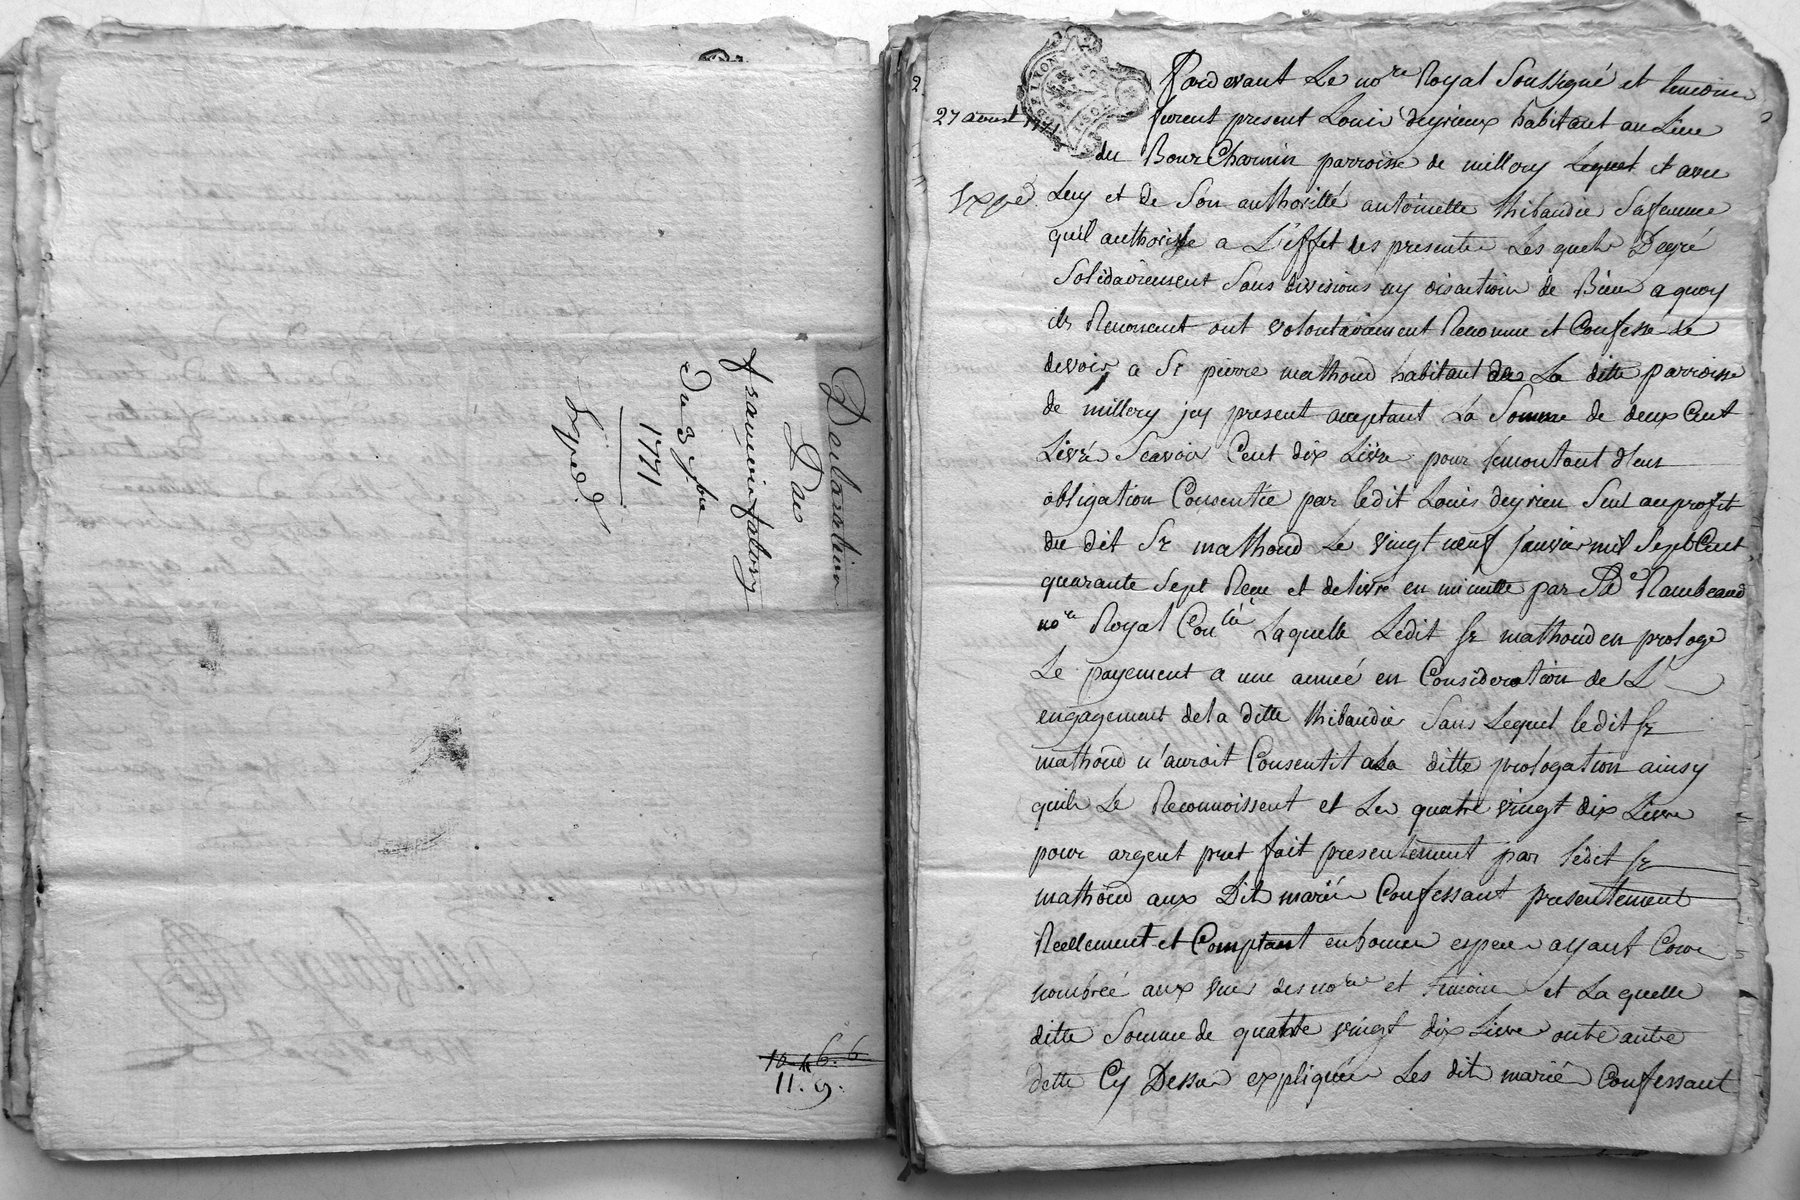 Declaration
Par
francois fatory
Du 3 7bre
1771
Expéd.
10. 6. 6
11. 9.
2
27 aoust 177
Expéd
GEN DE LYON
Pardevant Le nore Royal Soussigné et temoins
furent present Louis deyrieux habitant au Lieu
du Bour Charmin parroisse de millery Lequel et avec
Luy et de Son authorité antoinette thibaudier Sa femme
quil authorise a L'effet des presentes Lesquels Degré
Solidairement Sans divisions ny discution de Biens a quoy
ils Renoncent ont volontairement Reconnu et Confessé de
devoir a Sr pierre mathoud habitant de La ditte parroisse
de millery jcy present acceptant La Somme de deux Cent
Livres Scavoir Cent dix Livres pour le montant d'une
obligation Consentie par ledit Louis deyrieu Seul au profit
du dit Sr mathoud Le vingt neuf janvier mil Sept Cent
quarante Sept Reçue et delivré en minutte par Me Rambeaud
nore Royal Laquelle Ledit Sr mathoud en prologe
Le payement a une année en Consideration de L'
engagement de la ditte thibaudier Sans Lequel ledit Sr
mathoud n'auroit Consentit a La ditte prologation ainsy
quils Le Reconnoissent et Les quatre vingt dix Livres
pour argent pret fait presentement par ledit Sr
mathoud aux Dits mariés Confessant presentement
Reellement et Comptant en bonnes especes ayant Cours
nombrée aux vues des nore et temoins et La quelle
ditte Somme de quatre vingt dix Livres outre autre
dette Cy Dessus expliquée Les dit mariés Confessant